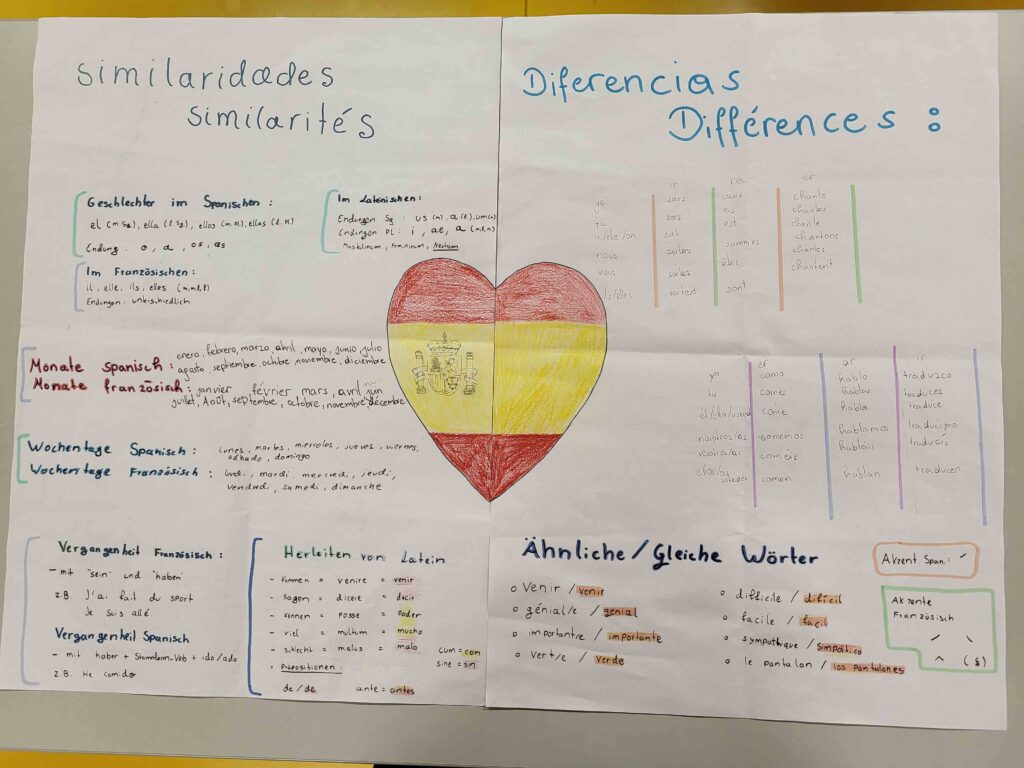 similaridades
similarités
Geschlechter im Spanischen :
el (m. Sg), ella (f. Sg), ellos (m. Pl), ellas (f. Pl)
Endung : o, a, os, as
Im Lateinischen :
Endungen Sg : us (m), a (f), um (n)
Endungen Pl : i, ae, a (m, f, n)
Maskulinum, Femininum, Neutrum
Im Französischen :
il, elle, ils, elles
Endungen : unterschiedlich
Monate spanisch : enero, febrero, marzo, abril, mayo, junio, julio
agosto, septiembre, octubre, noviembre, diciembre
Monate französisch : janvier février mars avril mai juin
juillet, Août, septembre, octobre, novembre, décembre
Wochentage Spanisch : lunes, martes, miercoles, jueves, viernes,
sábado, domingo
Wochentage Französisch : lundi, mardi mercredi, jeudi,
vendredi, samedi, dimanche
Vergangenheit Französisch :
- mit "sein" und "haben"
z.B. J'ai fait du sport
Je suis allé
Vergangenheit Spanisch
- mit haber + Stammform Verb + ido/ado
z.B. He comido
Herleiten von Latein
- kommen = venire = venir
- sagen = dicere = decir
- können = posse = poder
- viel = multum = mucho
- schlecht = malus = malo
cum = con
sine = sin
• Präpositionen :
de / de ante = antes
Diferencias
Différences :
ir re er
je sors suis chante
tu sors es chantes
il/elle/on sort est chante
nous sortons sommes chantons
vous sortez êtes chantez
ils/elles sortent sont chantent
er ar ir
yo como hablo traduzco
tú comes hablas traduces
él/ella/usted come habla traduce
nosotros/as comemos hablamos traducimo
vosotros/as coméis habláis traducís
ellos/as ustedes comen hablan traducen
Ähnliche / Gleiche Wörter
o venir / venir
o génial/e / genial
o important/e / importante
o vert/e / verde
o difficile / difícil
o facile / facil
o sympathique / simpático
o le pantalon / los pantalones
Akzent Span.: ´
Akzente
Französisch
´ `
^ (ş)